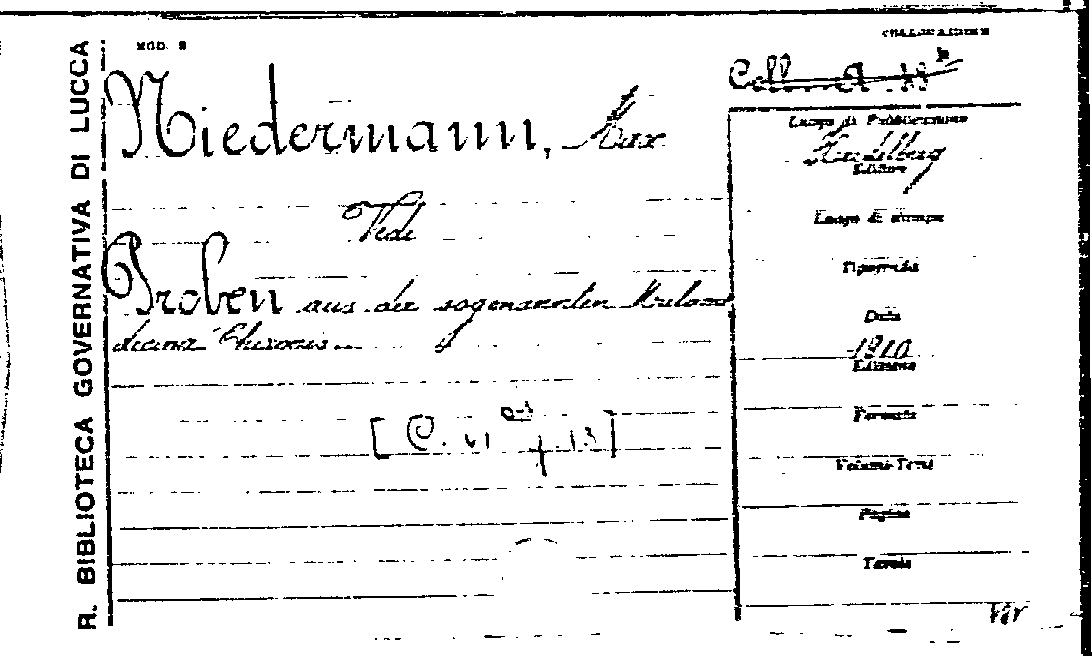 R. BIBLIOTECA GOVERNATIVA DI LUCCA
MOD. 2
COLLOCAZIONE
Coll.
Niedermann, Max
Vedi
Proben aus der sogenannten Mulome
dicina Chironis
[C. 41
Luogo di Pubblicazione
Heidelberg
Editore
Luogo di stampa
Tipografia
Data
1910
Edizione
Formato
Volumi-Tomi
Pagine
Tavole